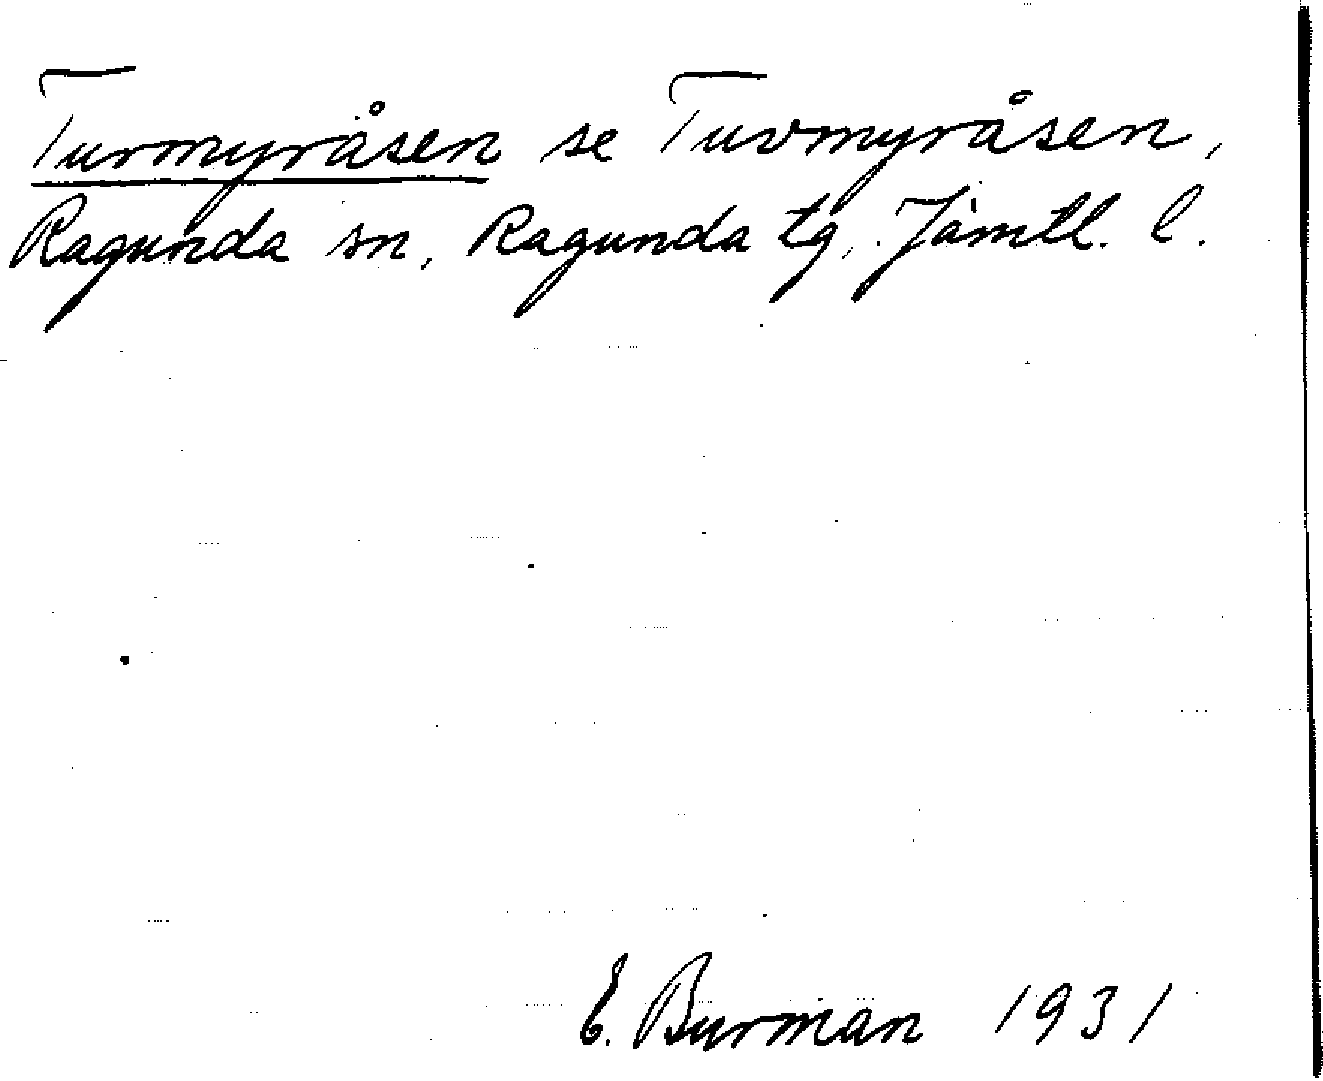 Turmyråsen se Tuvmyråsen,
Ragunda sn, Ragunda tg, Jämtl. l.
E. Burman 1931